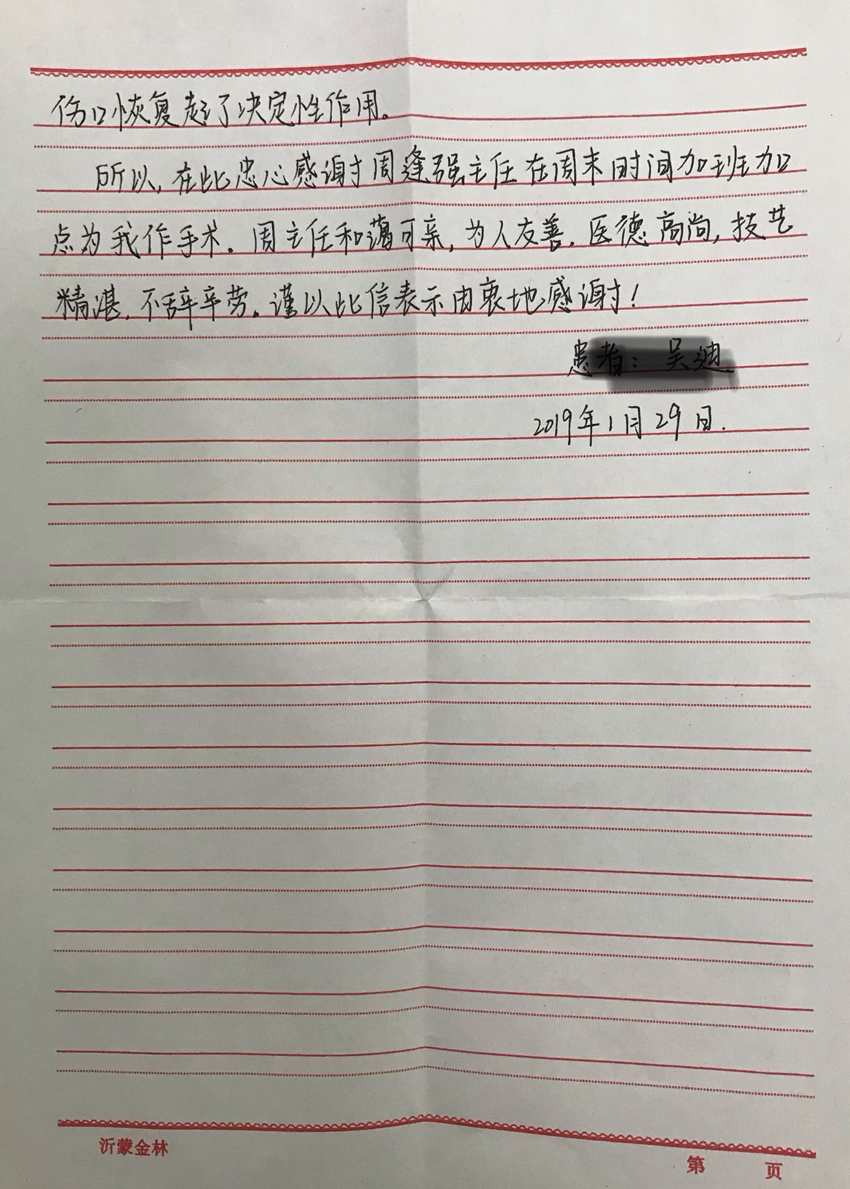 伤口恢复起了决定性作用。
所以，在此忠心感谢周逢强主任在周末时间加班加
点为我作手术。周主任和蔼可亲，为人友善，医德高尚，技艺
精湛，不辞辛劳。谨以此信表示由衷地感谢！
患者：吴迪
2019年1月29日.
沂蒙金林
第 页